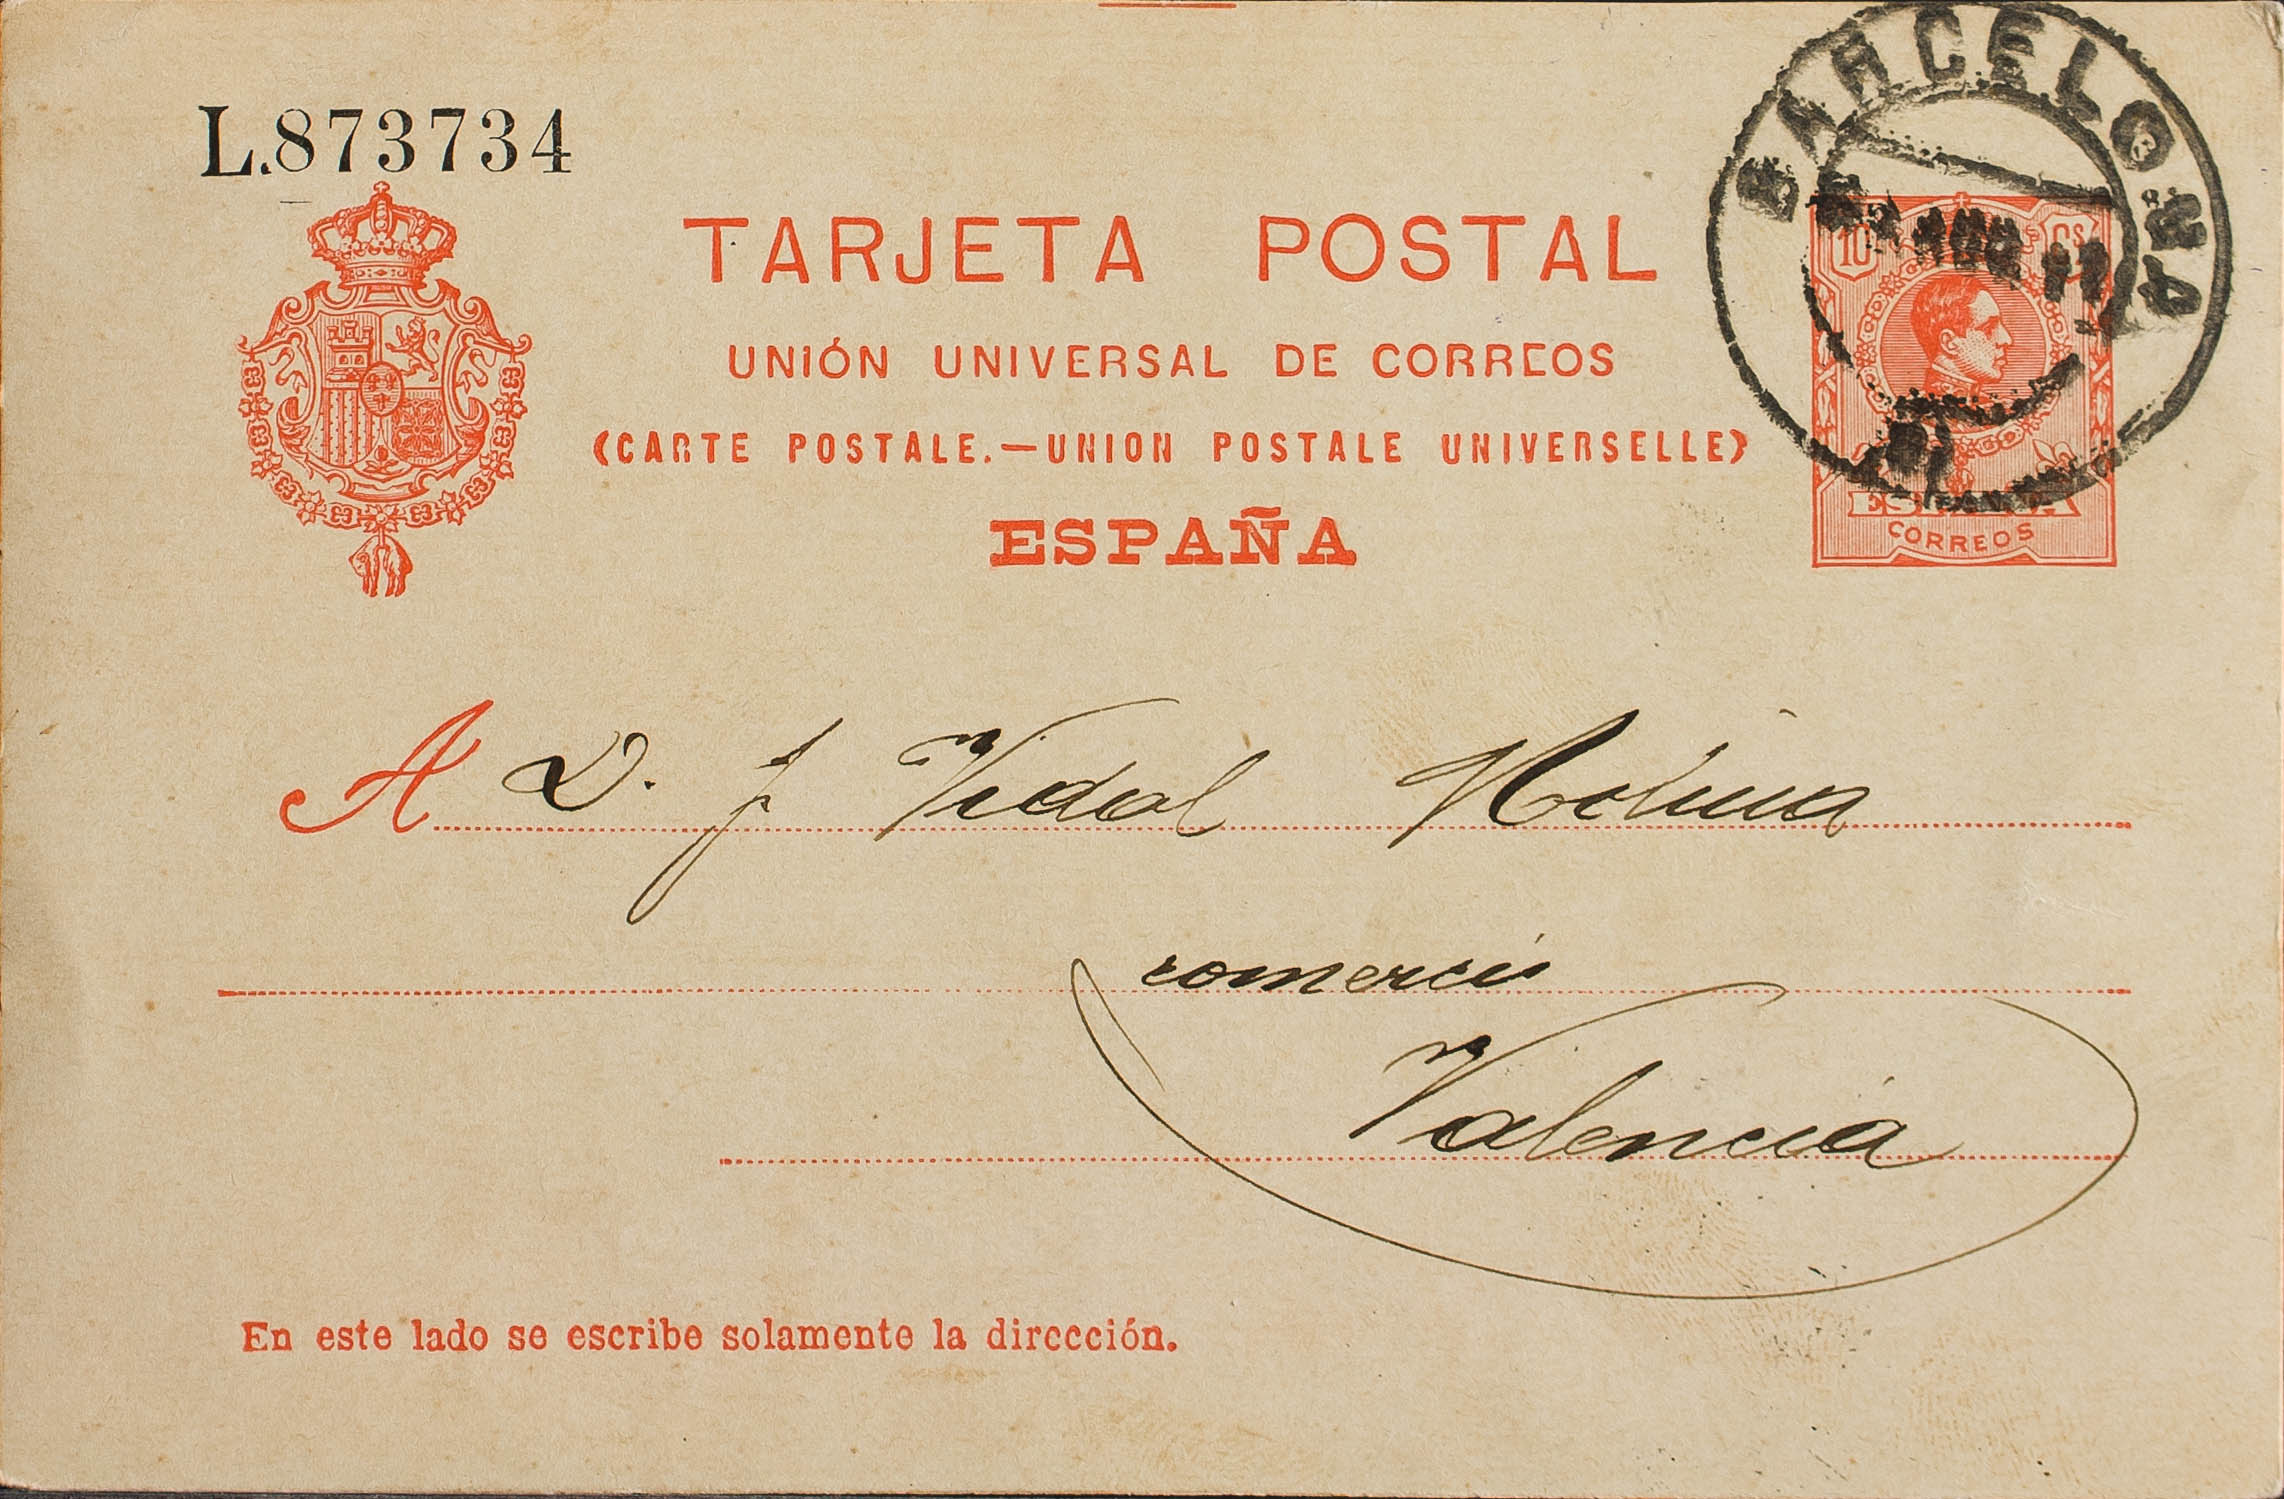 L.873734
TARJETA POSTAL
UNIÓN UNIVERSAL DE CORREOS
(CARTE POSTALE.—UNION POSTALE UNIVERSELLE)
ESPAÑA
BARCELONA
10 Cs
ESPAÑA
CORREOS
A D. J Vidal Molina
comercio
Valencia
En este lado se escribe solamente la dirección.